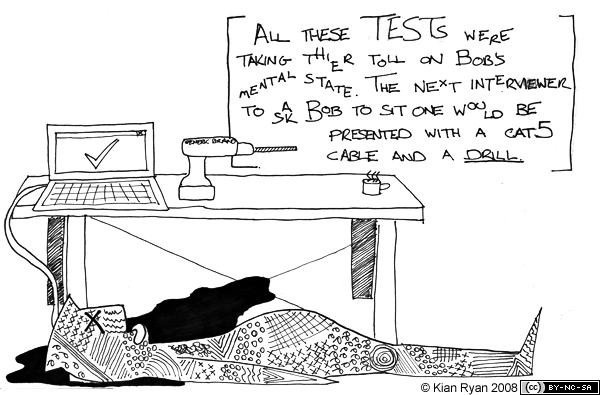 ALL THESE TESTS WERE
TAKING THIER TOLL ON BOB'S
MENTAL STATE. THE NEXT INTERVIEWER
TO ASK BOB TO SIT ONE WOULD BE
PRESENTED WITH A CAT5
CABLE AND A DRILL.
GENERIC BRAND
© Kian Ryan 2008 cc BY-NC-SA